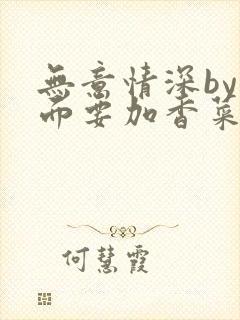 無意情深by
而要加香菜
何慧霞